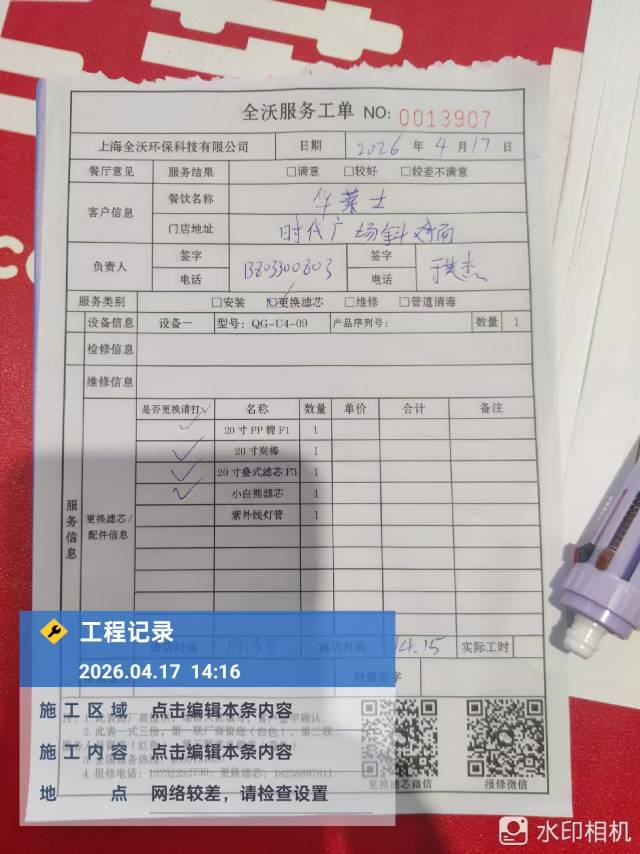 全沃服务工单 NO: 0013907
上海全沃环保科技有限公司 日期 2026 年 4 月 17 日
餐厅意见 服务结果 □满意 □较好 □较差不满意
客户信息 餐饮名称 华莱士
门店地址 时代广场斜对面
负责人 签字 签字
电话 13803300803 电话
服务类别 □安装 ☑更换滤芯 □维修 □管道消毒
设备信息 设备一 型号: QG-U4-09 产品序列号: 数量 1
检修信息
维修信息
服务信息
更换滤芯/配件信息
是否更换请打√ 名称 数量 单价 合计 备注
✓ 20寸PP棉F1 1
✓ 20寸炭棒 1
✓ 20寸叠式滤芯F3 1
✓ 小白熊滤芯 1
紫外线灯管 1
进店时间 13.55 离店时间 14.15 实际工时
工程记录
2026.04.17 14:16
施工区域 点击编辑本条内容
施工内容 点击编辑本条内容
地点 网络较差，请检查设置
2.此表一式三份，第一联厂商留底（白色），第二联
4.报修电话: 13732292730; 更换滤芯:
更换滤芯微信 报修微信
水印相机